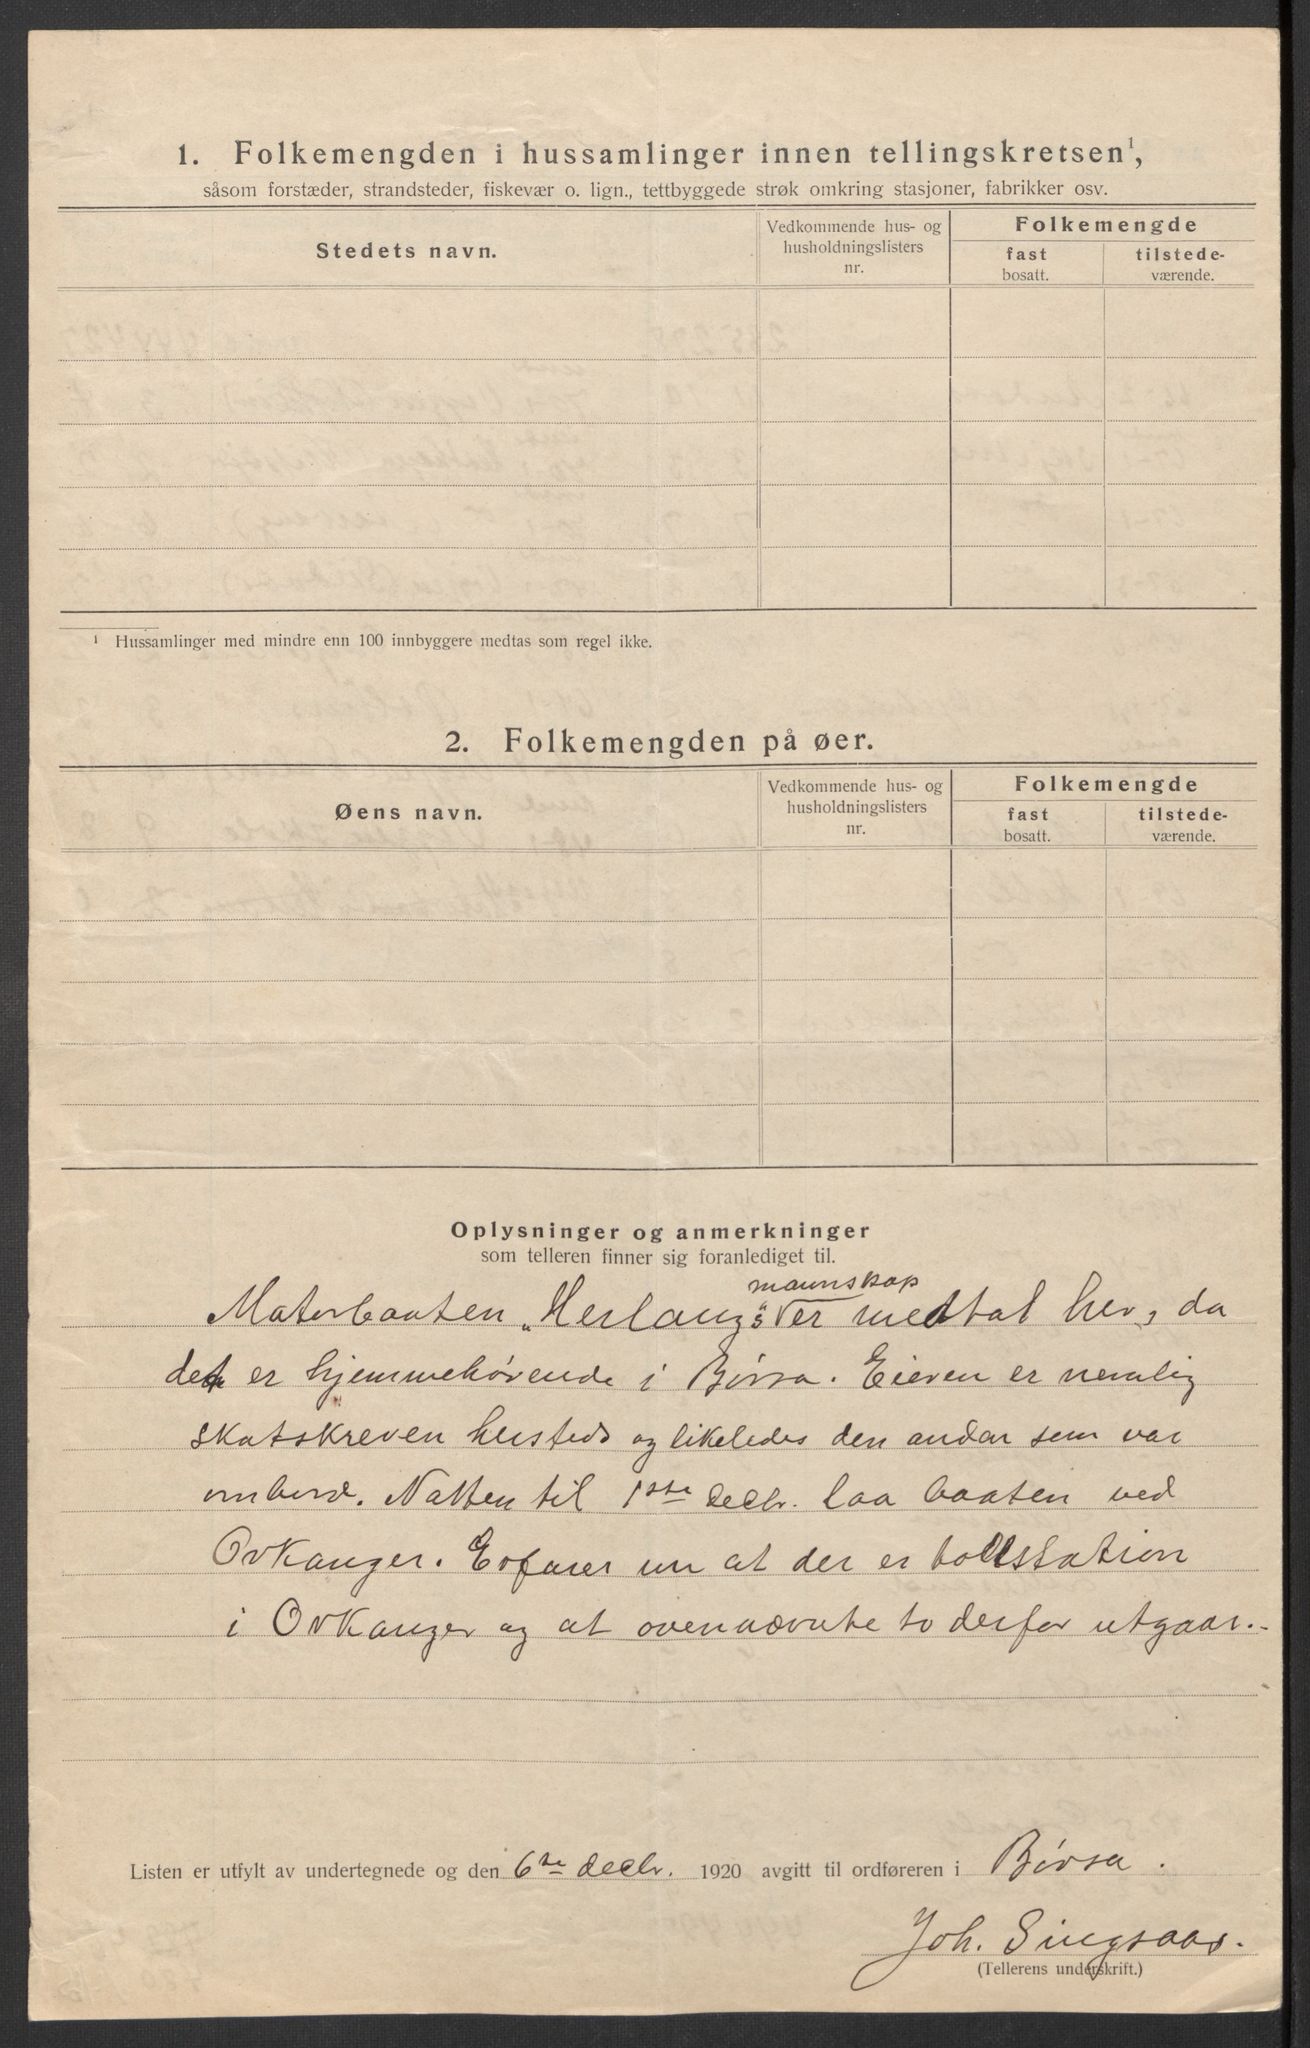 1. Folkemengden i hussamlinger innen tellingskretsen¹,
såsom forstæder, strandsteder, fiskevær o. lign., tettbyggede strøk omkring stasjoner, fabrikker osv.
Stedets navn.
Vedkommende hus- og
husholdningslisters
nr.
Folkemengde
fast
bosatt.
tilstede-
værende.
¹ Hussamlinger med mindre enn 100 innbyggere medtas som regel ikke.
2. Folkemengden på øer.
Øens navn.
Vedkommende hus- og
husholdningslisters
nr.
Folkemengde
fast
bosatt.
tilstede-
værende.
Oplysninger og anmerkninger
som telleren finner sig foranlediget til.
mannskap
Motorbaaten „Herlaug"s er medtat her, da
det er hjemmehørende i Børsa. Eieren er nemlig
skatskreven hersteds og likeledes den andar som var
ombord. Natten til 1ste decbr. laa baaten ved
Orkanger. Erfarer nu at der er tollstation
i Orkanger og at ovennævnte to derfor utgaar.-
Listen er utfylt av undertegnede og den 6te decbr. 1920 avgitt til ordføreren i Børsa.
Joh. Singsaas.
(Tellerens underskrift.)